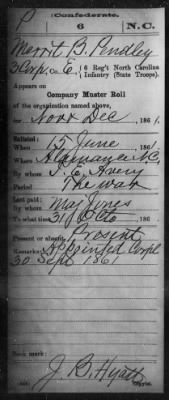 P
Confederate.
6 N.C.
Merrit B. Pendley
3 Corp, Co. E, 6 Reg't North Carolina
Infantry (State Troops).
Appears on
Company Muster Roll
of the organization named above,
for Nov & Dec, 1861.
Enlisted:
When 15 June, 1861.
Where Alamance N.C.
By whom I. E. Avery
Period The war
Last paid:
By whom Maj Jones
To what time 31 Oct, 1861
Present or absent Present
Remarks: Appointed Corpl
30 Sept 1861
Book mark:
J. B. Hyatt
Copyist.